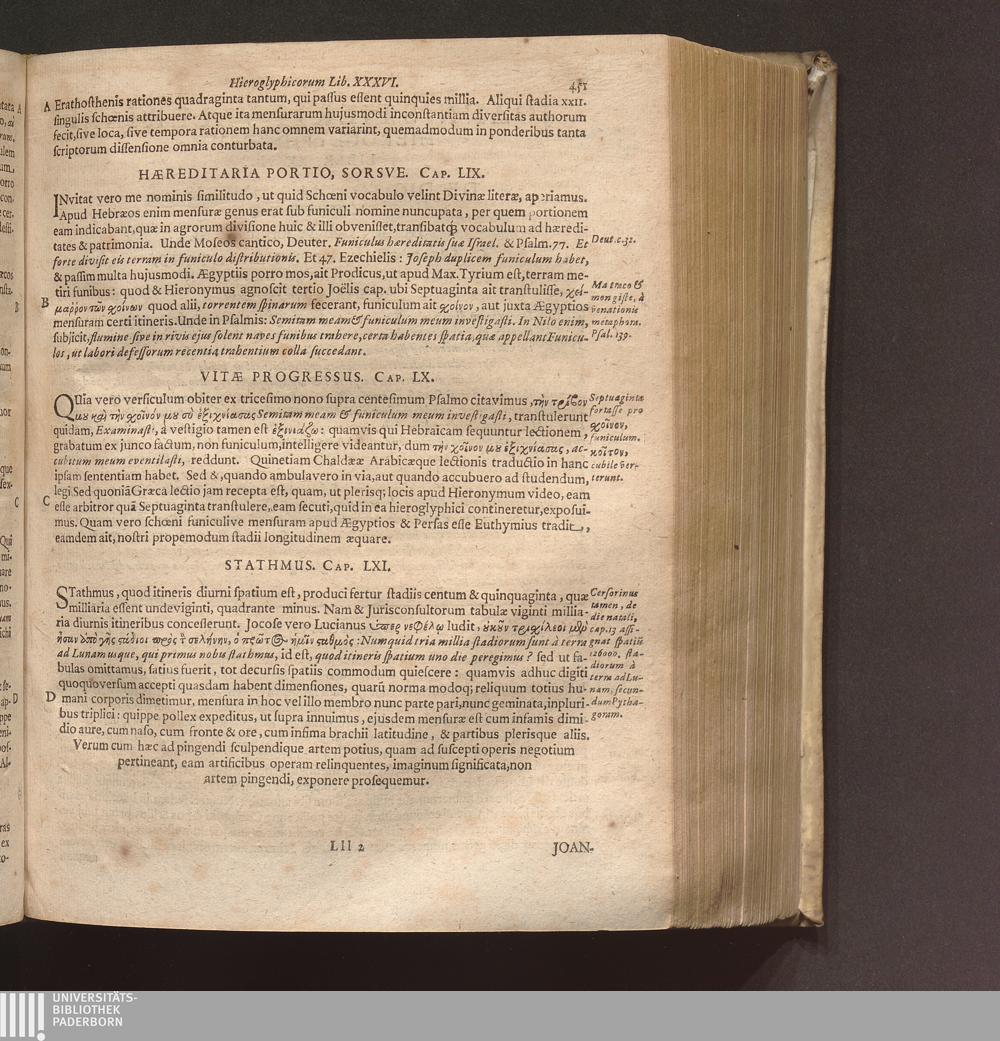 Hieroglyphicorum Lib. XXXVI. 451
A Erathosthenis rationes quadraginta tantum, qui passus essent quinquies millia. Aliqui stadia XXII.
singulis schœnis attribuere. Atque ita mensurarum hujusmodi inconstantiam diversitas authorum
fecit, sive loca, sive tempora rationem hanc omnem variarint, quemadmodum in ponderibus tanta
scriptorum dissensione omnia conturbata.
HÆREDITARIA PORTIO, SORSVE. CAP. LIX.
INvitat vero me nominis similitudo, ut quid Schœni vocabulo velint Divinæ literæ, aperiamus.
Apud Hebræos enim mensuræ genus erat sub funiculi nomine nuncupata, per quem portionem
eam indicabant, quæ in agrorum divisione huic & illi obvenisset, transibatq; vocabulum ad hæredi-
tates & patrimonia. Unde Moseos cantico, Deuter. Funiculus hæreditatis suæ Israel. & Psalm. 77. Et
forte divisit eis terram in funiculo distributionis. Et 47. Ezechielis: Joseph duplicem funiculum habet,
& passim multa hujusmodi. Ægyptiis porro mos, ait Prodicus, ut apud Max. Tyrium est, terram me-
tiri funibus: quod & Hieronymus agnoscit tertio Joëlis cap. ubi Septuaginta ait transtulisse, χεί-
B μαῤῥον τῶν χοίνων quod alii, torrentem spinarum fecerant, funiculum ait χοίνον, aut juxta Ægyptios
mensuram certi itineris. Unde in Psalmis: Semitam meam & funiculum meum investigasti. In Nilo enim,
subjicit, flumine sive in rivis ejus solent naves funibus trahere, certa habentes spatia, quæ appellant Funicu-
los, ut labori defessorum recentia trahentium colla succedant.
Deut. c. 32.
mon giste, à
venationis
metaphora.
Psal. 139.
VITÆ PROGRESSUS. CAP. LX.
QUia vero versiculum obiter ex tricesimo nono supra centesimum Psalmo citavimus, τὴν τρίβον
μου καὶ τὴν χοῖνόν μου σὺ ἐξιχνίασας Semitam meam & funiculum meum investigasti, transtulerunt
quidam, Examinasti, à vestigio tamen est ἐξινιάζω: quamvis qui Hebraicam sequuntur lectionem,
grabatum ex junco factum, non funiculum, intelligere videantur, dum τὴν χοῖνον μου ἐξιχνίασας, ac-
cubitum meum eventilasti, reddunt. Quinetiam Chaldææ Arabicæque lectionis traductio in hanc
ipsam sententiam habet. Sed &, quando ambulavero in via, aut quando accubuero ad studendum,
legi. Sed quoniã Græca lectio jam recepta est, quam, ut plerisq; locis apud Hieronymum video, eam
C esse arbitror quã Septuaginta transtulere, eam secuti, quid in ea hieroglyphici contineretur, exposui-
mus. Quam vero schœni funiculive mensuram apud Ægyptios & Persas esse Euthymius tradit,
eamdem ait, nostri propemodum stadii longitudinem æquare.
Septuaginta
fortasse pro
χοίνον,
funiculum.
κοῖτον,
cubile ver-
terunt.
STATHMUS. CAP. LXI.
STathmus, quod itineris diurni spatium est, produci fertur stadiis centum & quinquaginta, quæ
milliaria essent undeviginti, quadrante minus. Nam & Jurisconsultorum tabulæ viginti millia-
ria diurnis itineribus concesserunt. Jocose vero Lucianus ὑπερνεφέλω ludit, οὐκοῦν τρισχίλιοι μὲν
ἦσαν ἀπὸ γῆς στάδιοι πρὸς τ σελήνην, ὁ πρῶτος ἡμῖν σταθμὸς: Numquid tria millia stadiorum sunt à terra
ad Lunam usque, qui primus nobis stathmus, id est, quod itineris spatium uno die peregimus? sed ut fa-
bulas omittamus, satius fuerit, tot decursis spatiis commodum quiescere: quamvis adhuc digiti
quoquoversum accepti quasdam habent dimensiones, quarũ norma modoq; reliquum totius hu-
D mani corporis dimetimur, mensura in hoc vel illo membro nunc parte pari, nunc geminata, in pluri-
bus triplici: quippe pollex expeditus, ut supra innuimus, ejusdem mensuræ est cum infamis dimi-
dio aure, cum naso, cum fronte & ore, cum infima brachii latitudine, & partibus plerisque aliis.
Verum cum hæc ad pingendi sculpendique artem potius, quam ad suscepti operis negotium
pertineant, eam artificibus operam relinquentes, imaginum significata, non
artem pingendi, exponere prosequemur.
Censorinus
tamen, de
die natali,
cap. 13 assi-
gnat spatiũ
126000. sta-
diorum à
terra ad Lu-
nam, secun-
dum Pytha-
goram.
Lll 2 JOAN-
UNIVERSITÄTS-
BIBLIOTHEK
PADERBORN